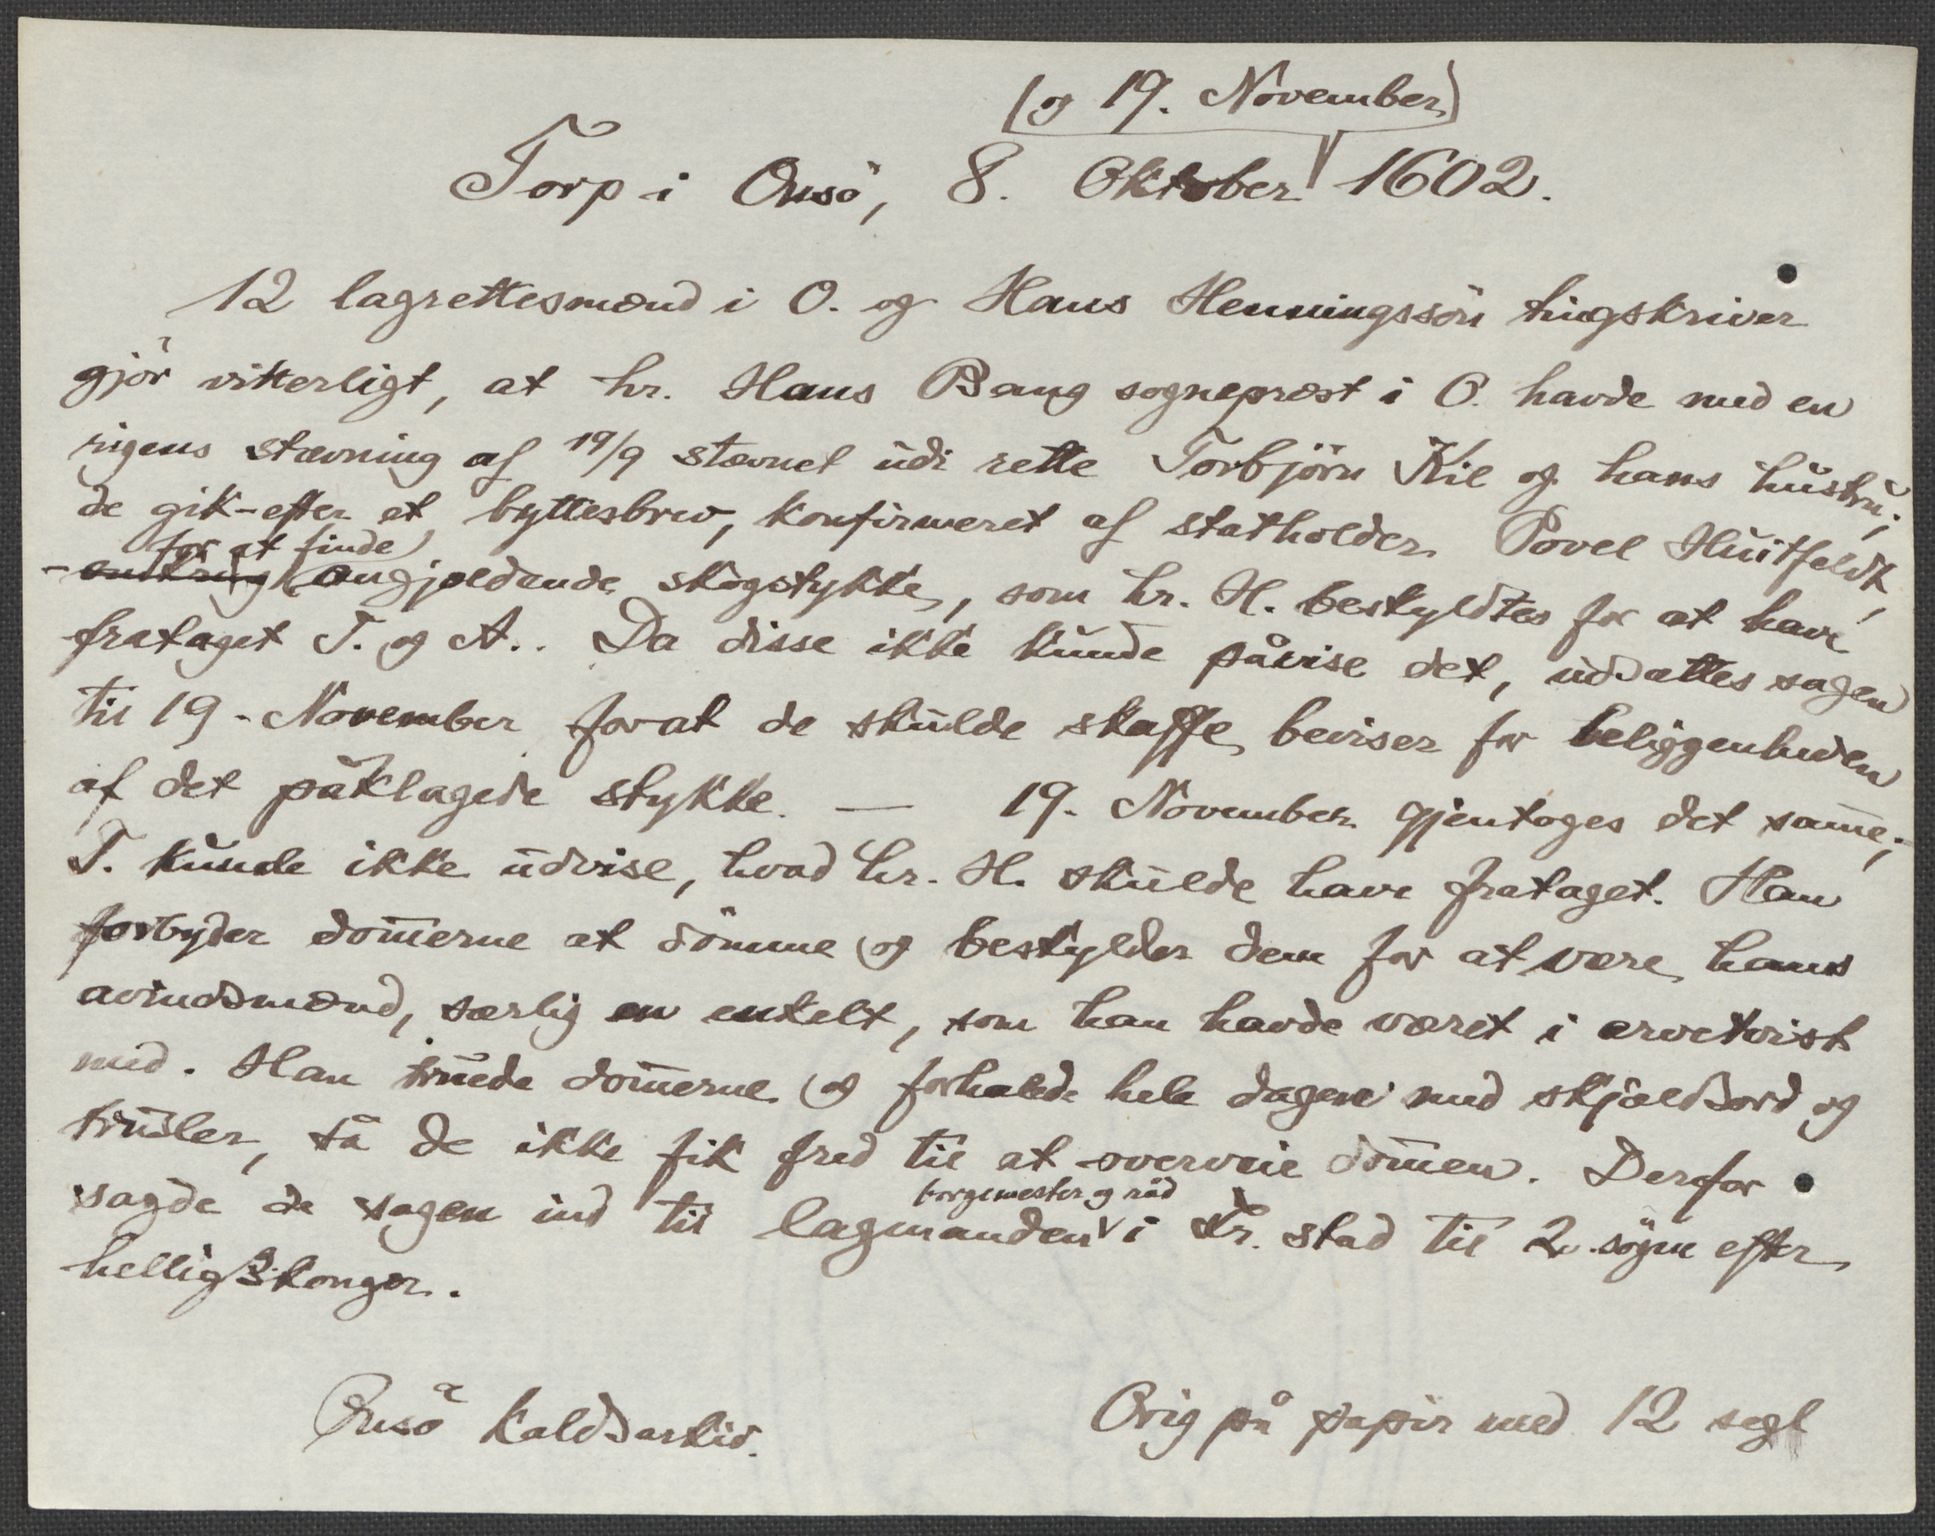 (og 19. November)
Torp i Onsö, 8. Oktober 1602.
12 lagrettesmænd i O. og Hans Henningssön tingskriver
gjör vitterligt, at hr. Hans Bang sogneprest i O. havde med en
rigens stævning af 19/9 stævnet udi rette Torbjörn Kil og hans hustru;
de gik efter et byttesbrev, konfirmeret af statholder Povel Huitfeldt,
for at finde
angjældende skogstykke, som hr. H. beskyldtes for at have
frataget T. og A.. Da disse ikke kunde påvise det, udsattes sagen
til 19. November forat de skulde skaffe beviser for beliggenheden
af det påklagede stykke. — 19. November gjentoges det samme;
T. kunde ikke udvise, hvad hr. H. skulde have frataget. Han
forbyder dom̄erne at dömme og beskylder dem for at være hans
avindsmænd, særlig en enkelt, som han havde været i arvetvist
med. Han truede dom̄erne og forhalede hele dagen med skjældsord og
trusler, så de ikke fik fred til at overveie dom̄en. Derfor
borgemester og råd
sagde de sagen ind til lagmanden i Fr. stad til 2. sögn efter
hellig 3 konger.
Onsö kaldsarkiv. Orig på papir med 12 segl